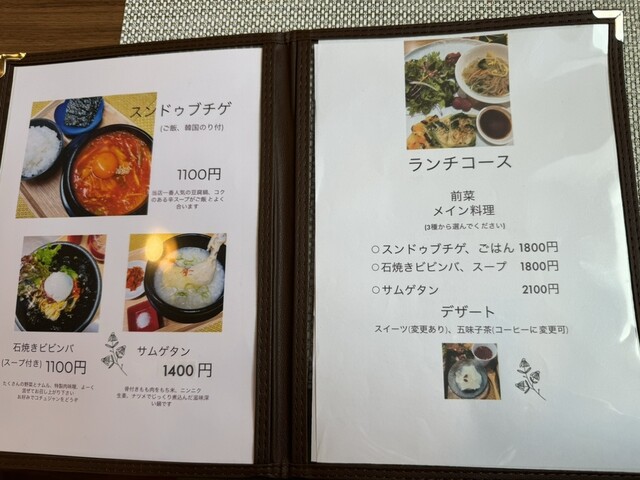 スンドゥブチゲ
(ご飯、韓国のり付)
1100円
当店一番人気の豆腐鍋、コク
のある辛スープがご飯とよく
合います
石焼きビビンバ
(スープ付き) 1100円
たくさんの野菜とナムル、特製肉味噌、よーく
混ぜてお召し上がり下さい
お好みでコチュジャンをどうぞ
サムゲタン
1400 円
骨付きもも肉をもち米、ニンニク
生姜、ナツメでじっくり煮込んだ滋味深
い鍋です
ランチコース
前菜
メイン料理
(3種から選んでください)
○スンドゥブチゲ、ごはん 1800円
○石焼きビビンバ、スープ 1800円
○サムゲタン 2100円
デザート
スイーツ(変更あり)、五味子茶(コーヒーに変更可)